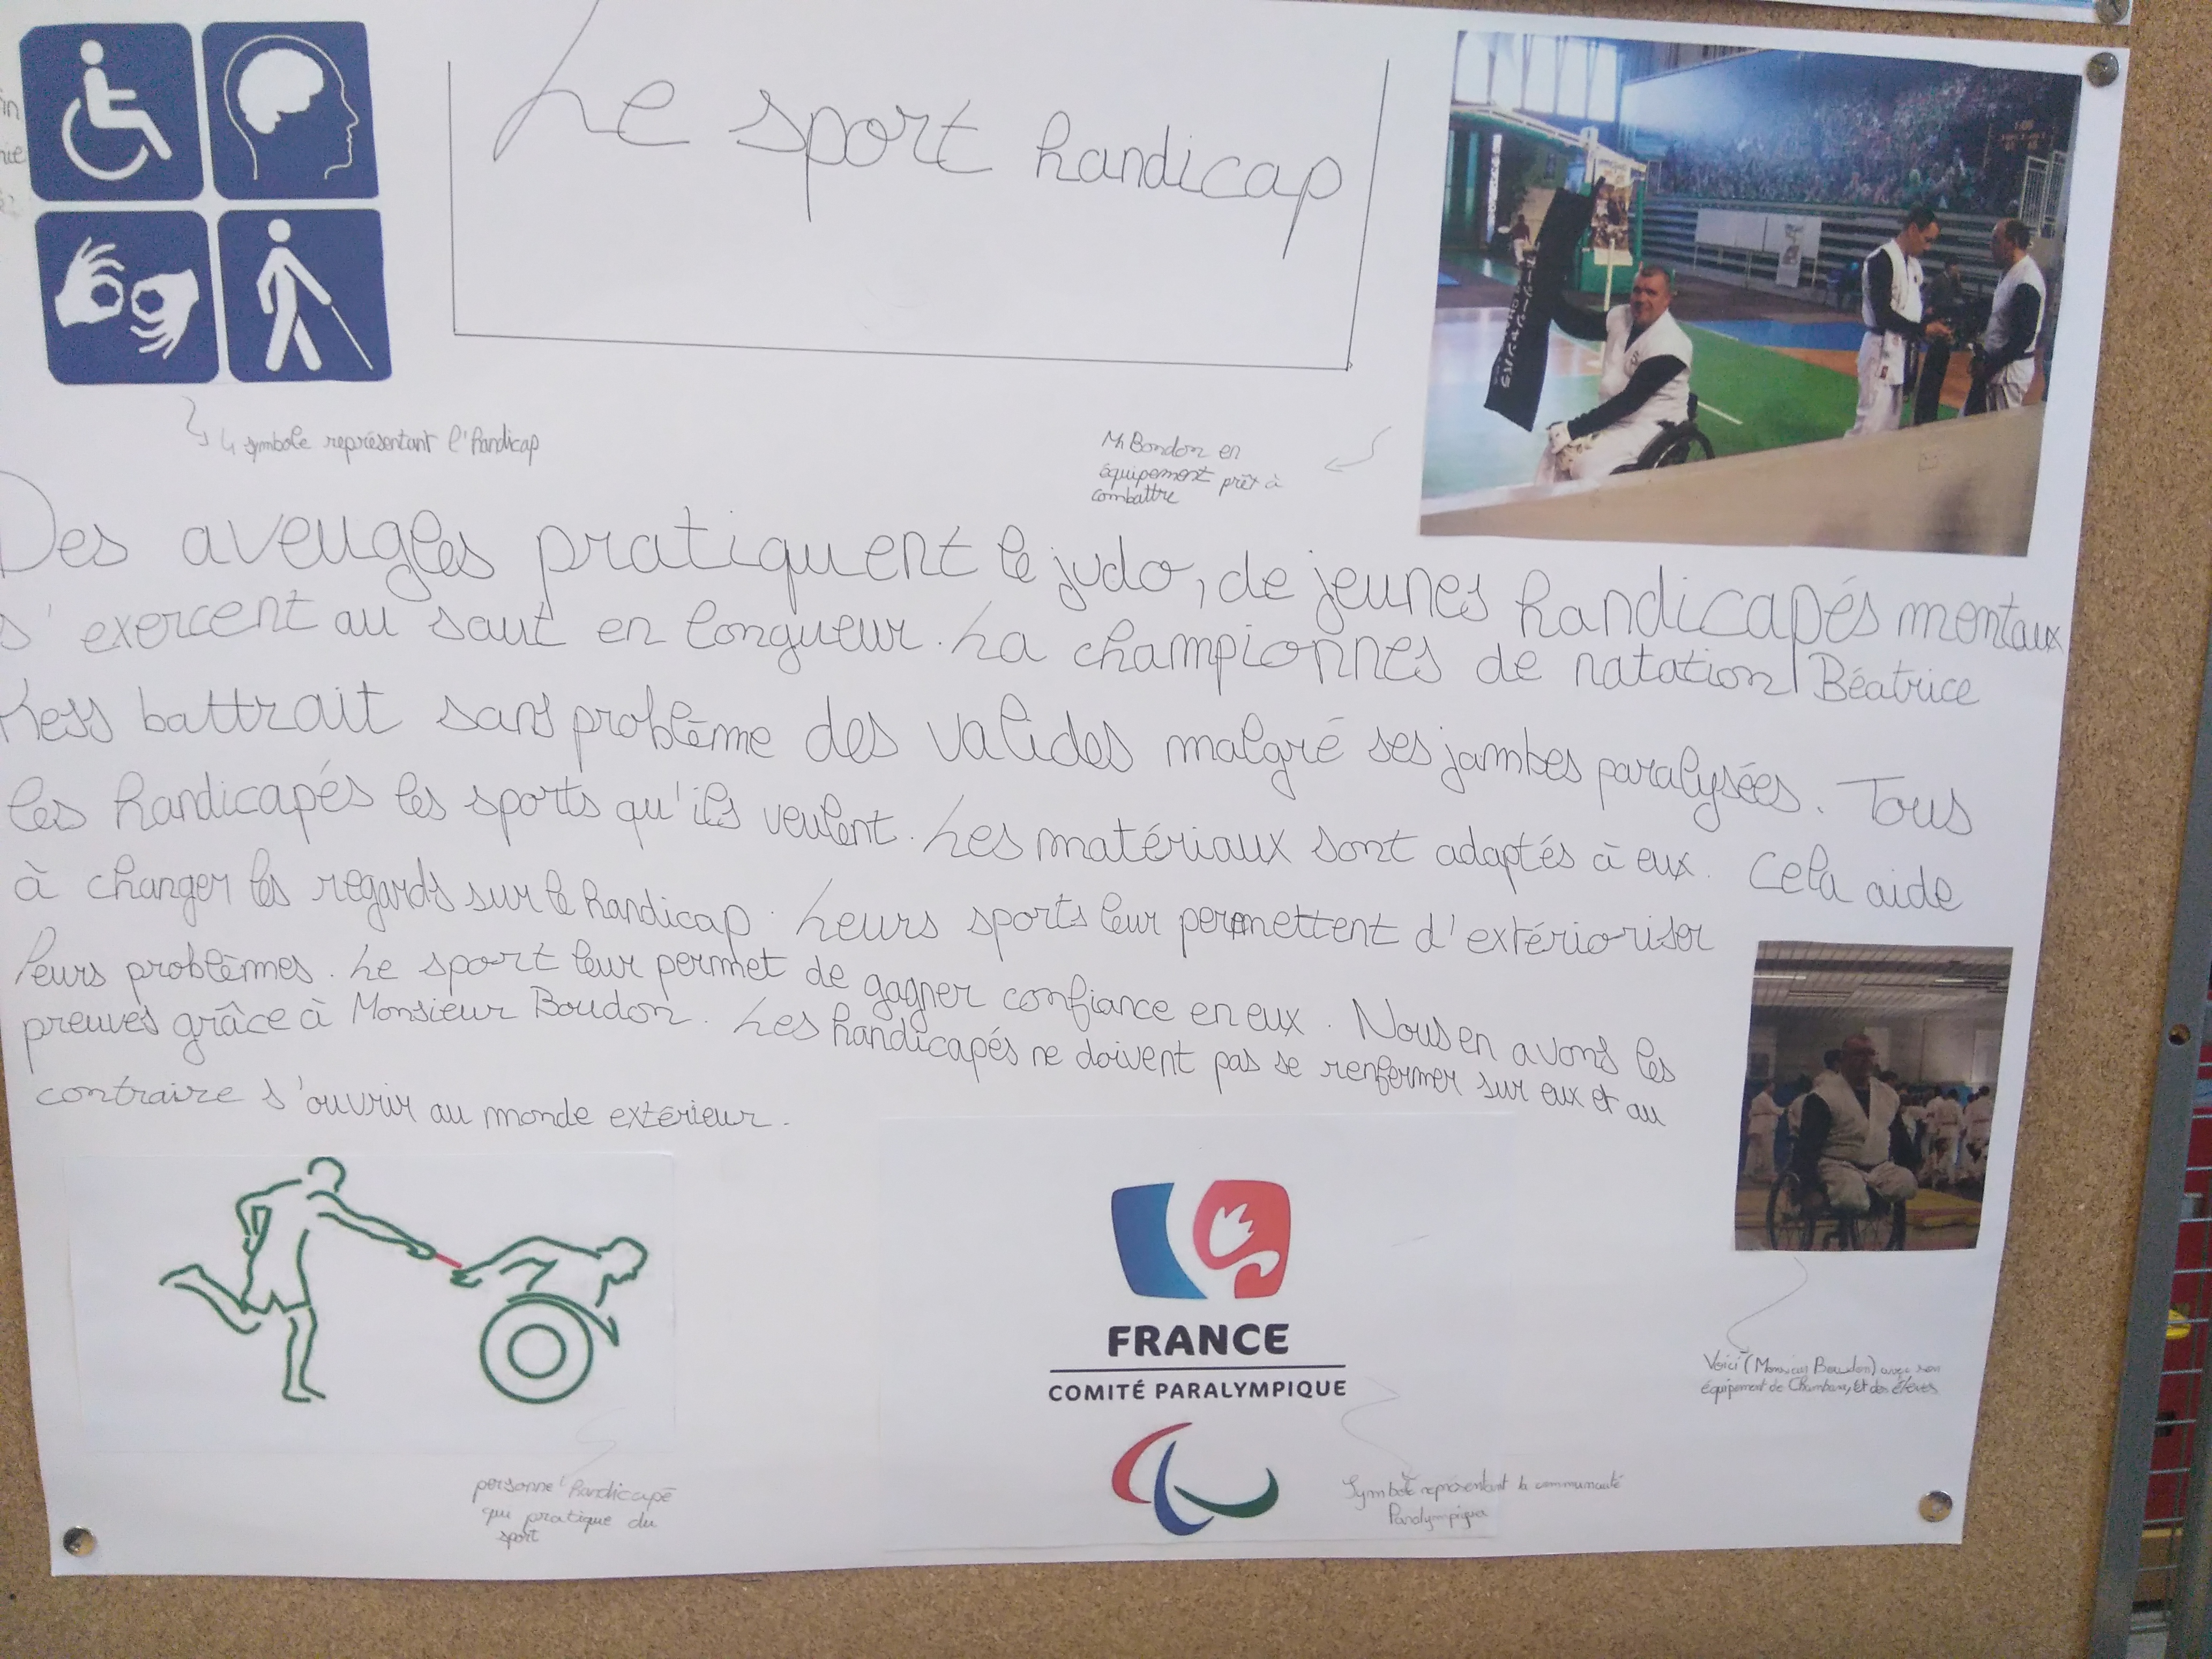 Le sport handicap
4 symbole représentant l'handicap
Mr Boudon en
équipement prêt à
combattre
Des aveugles pratiquent le judo, de jeunes handicapés mentaux
s'exercent au saut en longueur. La championnes de natation Béatrice
Hess battrait sans problème des valides malgré ses jambes paralysées. Tous
les handicapés les sports qu'ils veulent. Les matériaux sont adaptés à eux. Cela aide
à changer les regards sur le handicap. Leurs sports leur permettent d'extérioriser
leurs problèmes. Le sport leur permet de gagner confiance en eux. Nous en avons les
preuves grâce à Monsieur Boudon. Les handicapés ne doivent pas se renfermer sur eux et au
contraire s'ouvrir au monde extérieur.
FRANCE
COMITÉ PARALYMPIQUE
Voici (Monsieur Boudon) avec son
équipement de Chambara, Et des élèves
personne handicapé
qui pratique du
sport
Symbole représentant la communauté
Paralympique